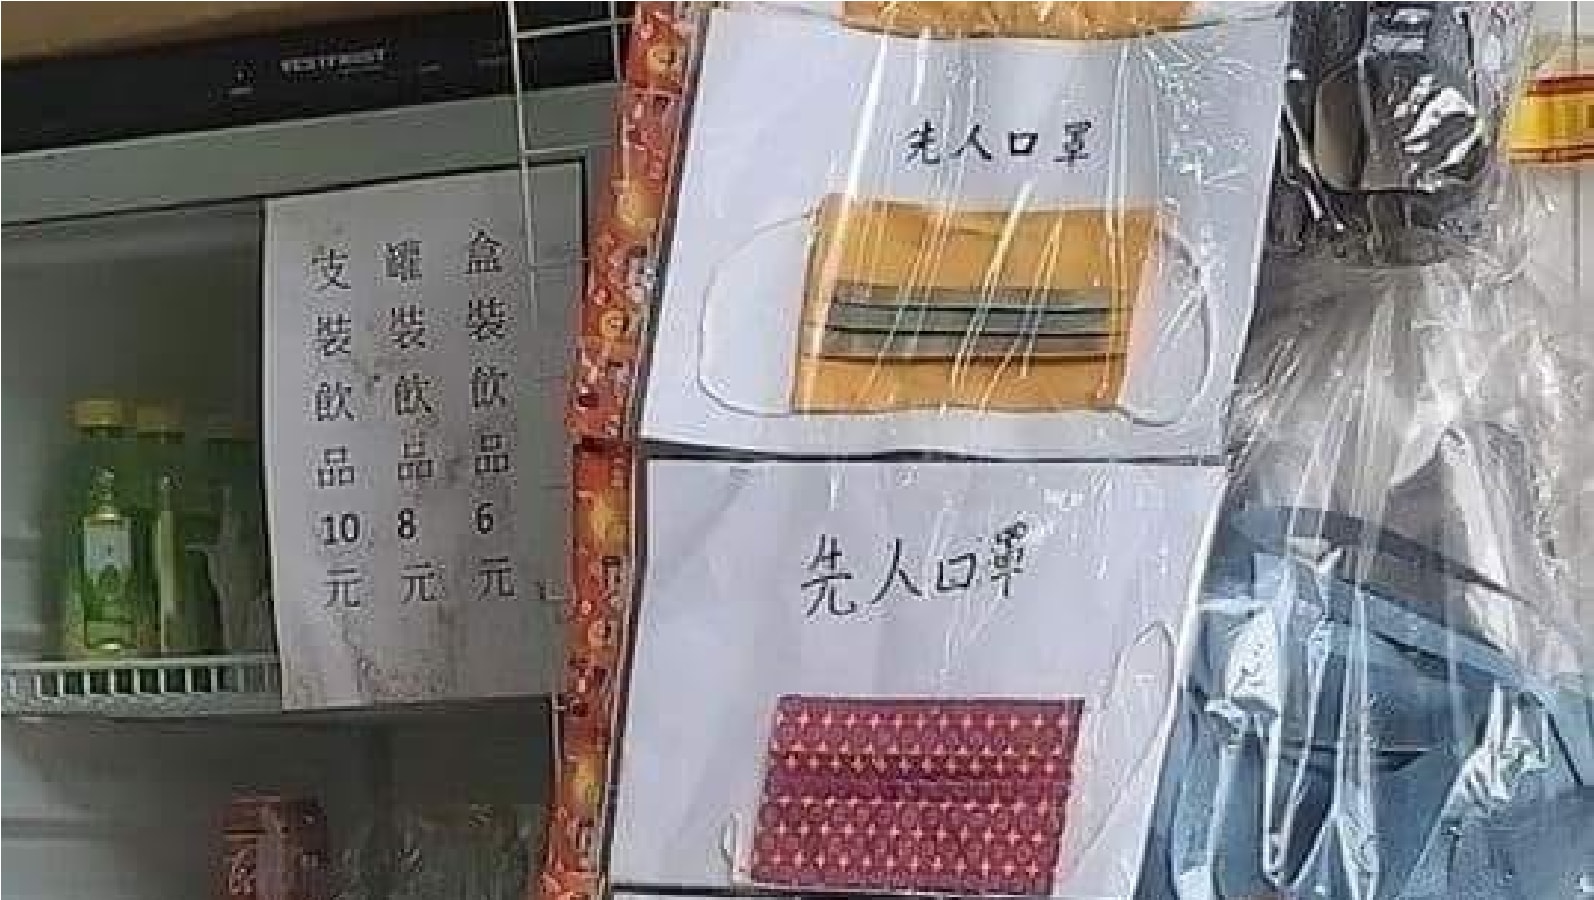 VESTFROST
盒裝飲品6元
罐裝飲品8元
支裝飲品10元
先人口罩
先人口罩